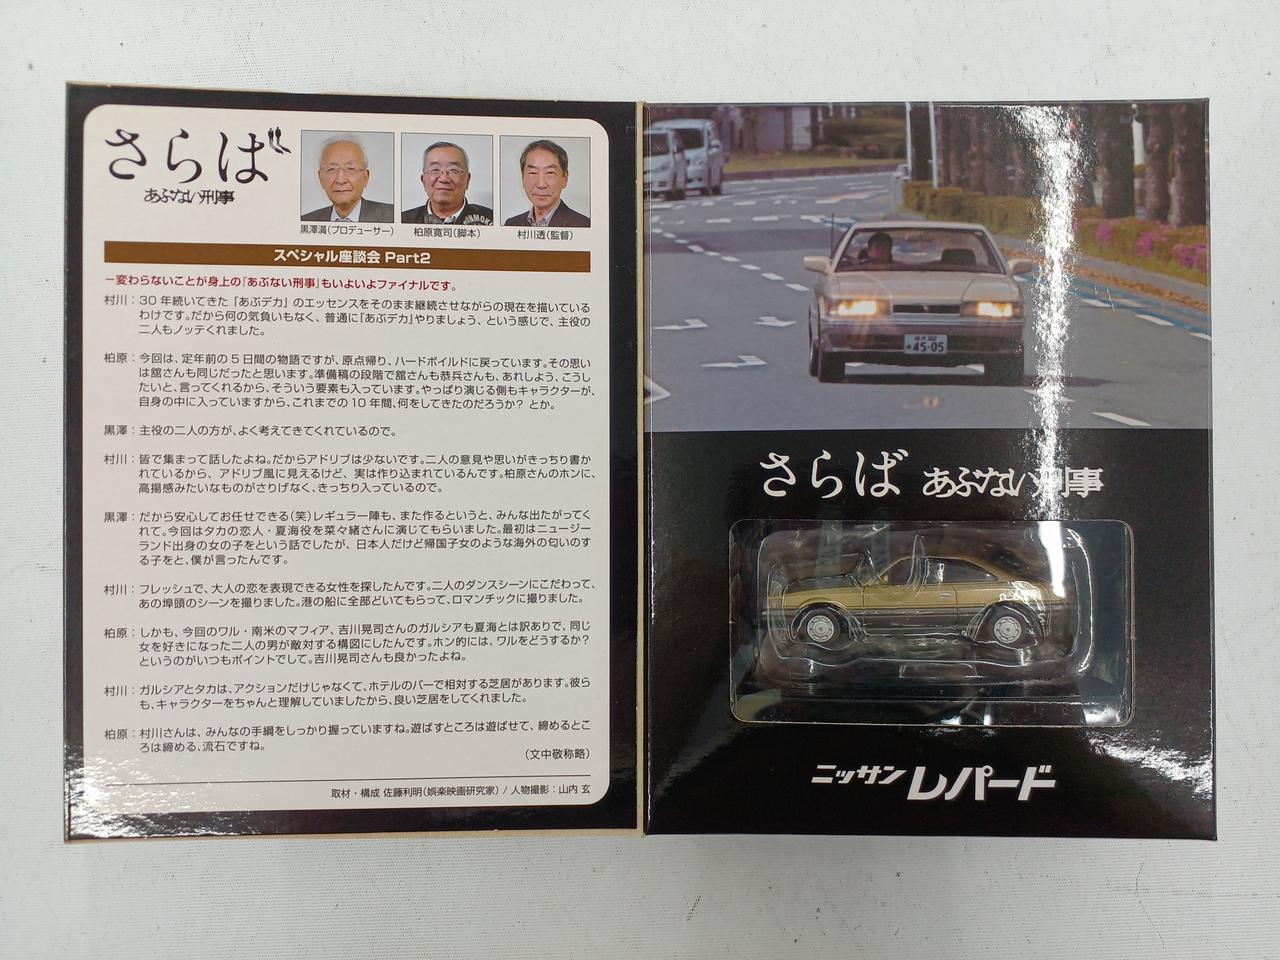 さらば
あぶない刑事
黒澤満(プロデューサー)
柏原寛司(脚本)
村川透(監督)
スペシャル座談会 Part2
−変わらないことが身上の『あぶない刑事』もいよいよファイナルです。
村川：30年続いてきた『あぶデカ』のエッセンスをそのまま継続させながらの現在を描いている
わけです。だから何の気負いもなく、普通に『あぶデカ』やりましょう、という感じで、主役の
二人もノッテくれました。
柏原：今回は、定年前の5日間の物語ですが、原点帰り、ハードボイルドに戻っています。その思い
は舘さんも同じだったと思います。準備稿の段階で舘さんも恭兵さんも、あれしよう、こうし
たいと、言ってくれるから、そういう要素も入っています。やっぱり演じる側もキャラクターが、
自身の中に入っていますから、これまでの10年間、何をしてきたのだろうか？とか。
黒澤：主役の二人の方が、よく考えてきてくれているので。
村川：皆で集まって話したよね。だからアドリブは少ないです。二人の意見や思いがきっちり書か
れているから、アドリブ風に見えるけど、実は作り込まれているんです。柏原さんのホンに、
高揚感みたいなものがさりげなく、きっちり入っているので。
黒澤：だから安心してお任せできる(笑)レギュラー陣も、また作るというと、みんな出たがってく
れて。今回はタカの恋人・夏海役を菜々緒さんに演じてもらいました。最初はニュージー
ランド出身の女の子をという話でしたが、日本人だけど帰国子女のような海外の匂いのす
る子をと、僕が言ったんです。
村川：フレッシュで、大人の恋を表現できる女性を探したんです。二人のダンスシーンにこだわって、
あの埠頭のシーンを撮りました。港の船に全部どいてもらって、ロマンチックに撮りました。
柏原：しかも、今回のワル・南米のマフィア、吉川晃司さんのガルシアも夏海とは訳ありで、同じ
女を好きになった二人の男が敵対する構図にしたんです。ホン的には、ワルをどうするか？
というのがいつもポイントでして。吉川晃司さんも良かったよね。
村川：ガルシアとタカは、アクションだけじゃなくて、ホテルのバーで相対する芝居があります。彼ら
も、キャラクターをちゃんと理解していましたから、良い芝居をしてくれました。
柏原：村川さんは、みんなの手綱をしっかり握っていますね。遊ばすところは遊ばせて、締めるとこ
ろは締める、流石ですね。
(文中敬称略)
取材・構成 佐藤利明(娯楽映画研究家) / 人物撮影：山内 玄
45-05
さらば あぶない刑事
ニッサン レパード